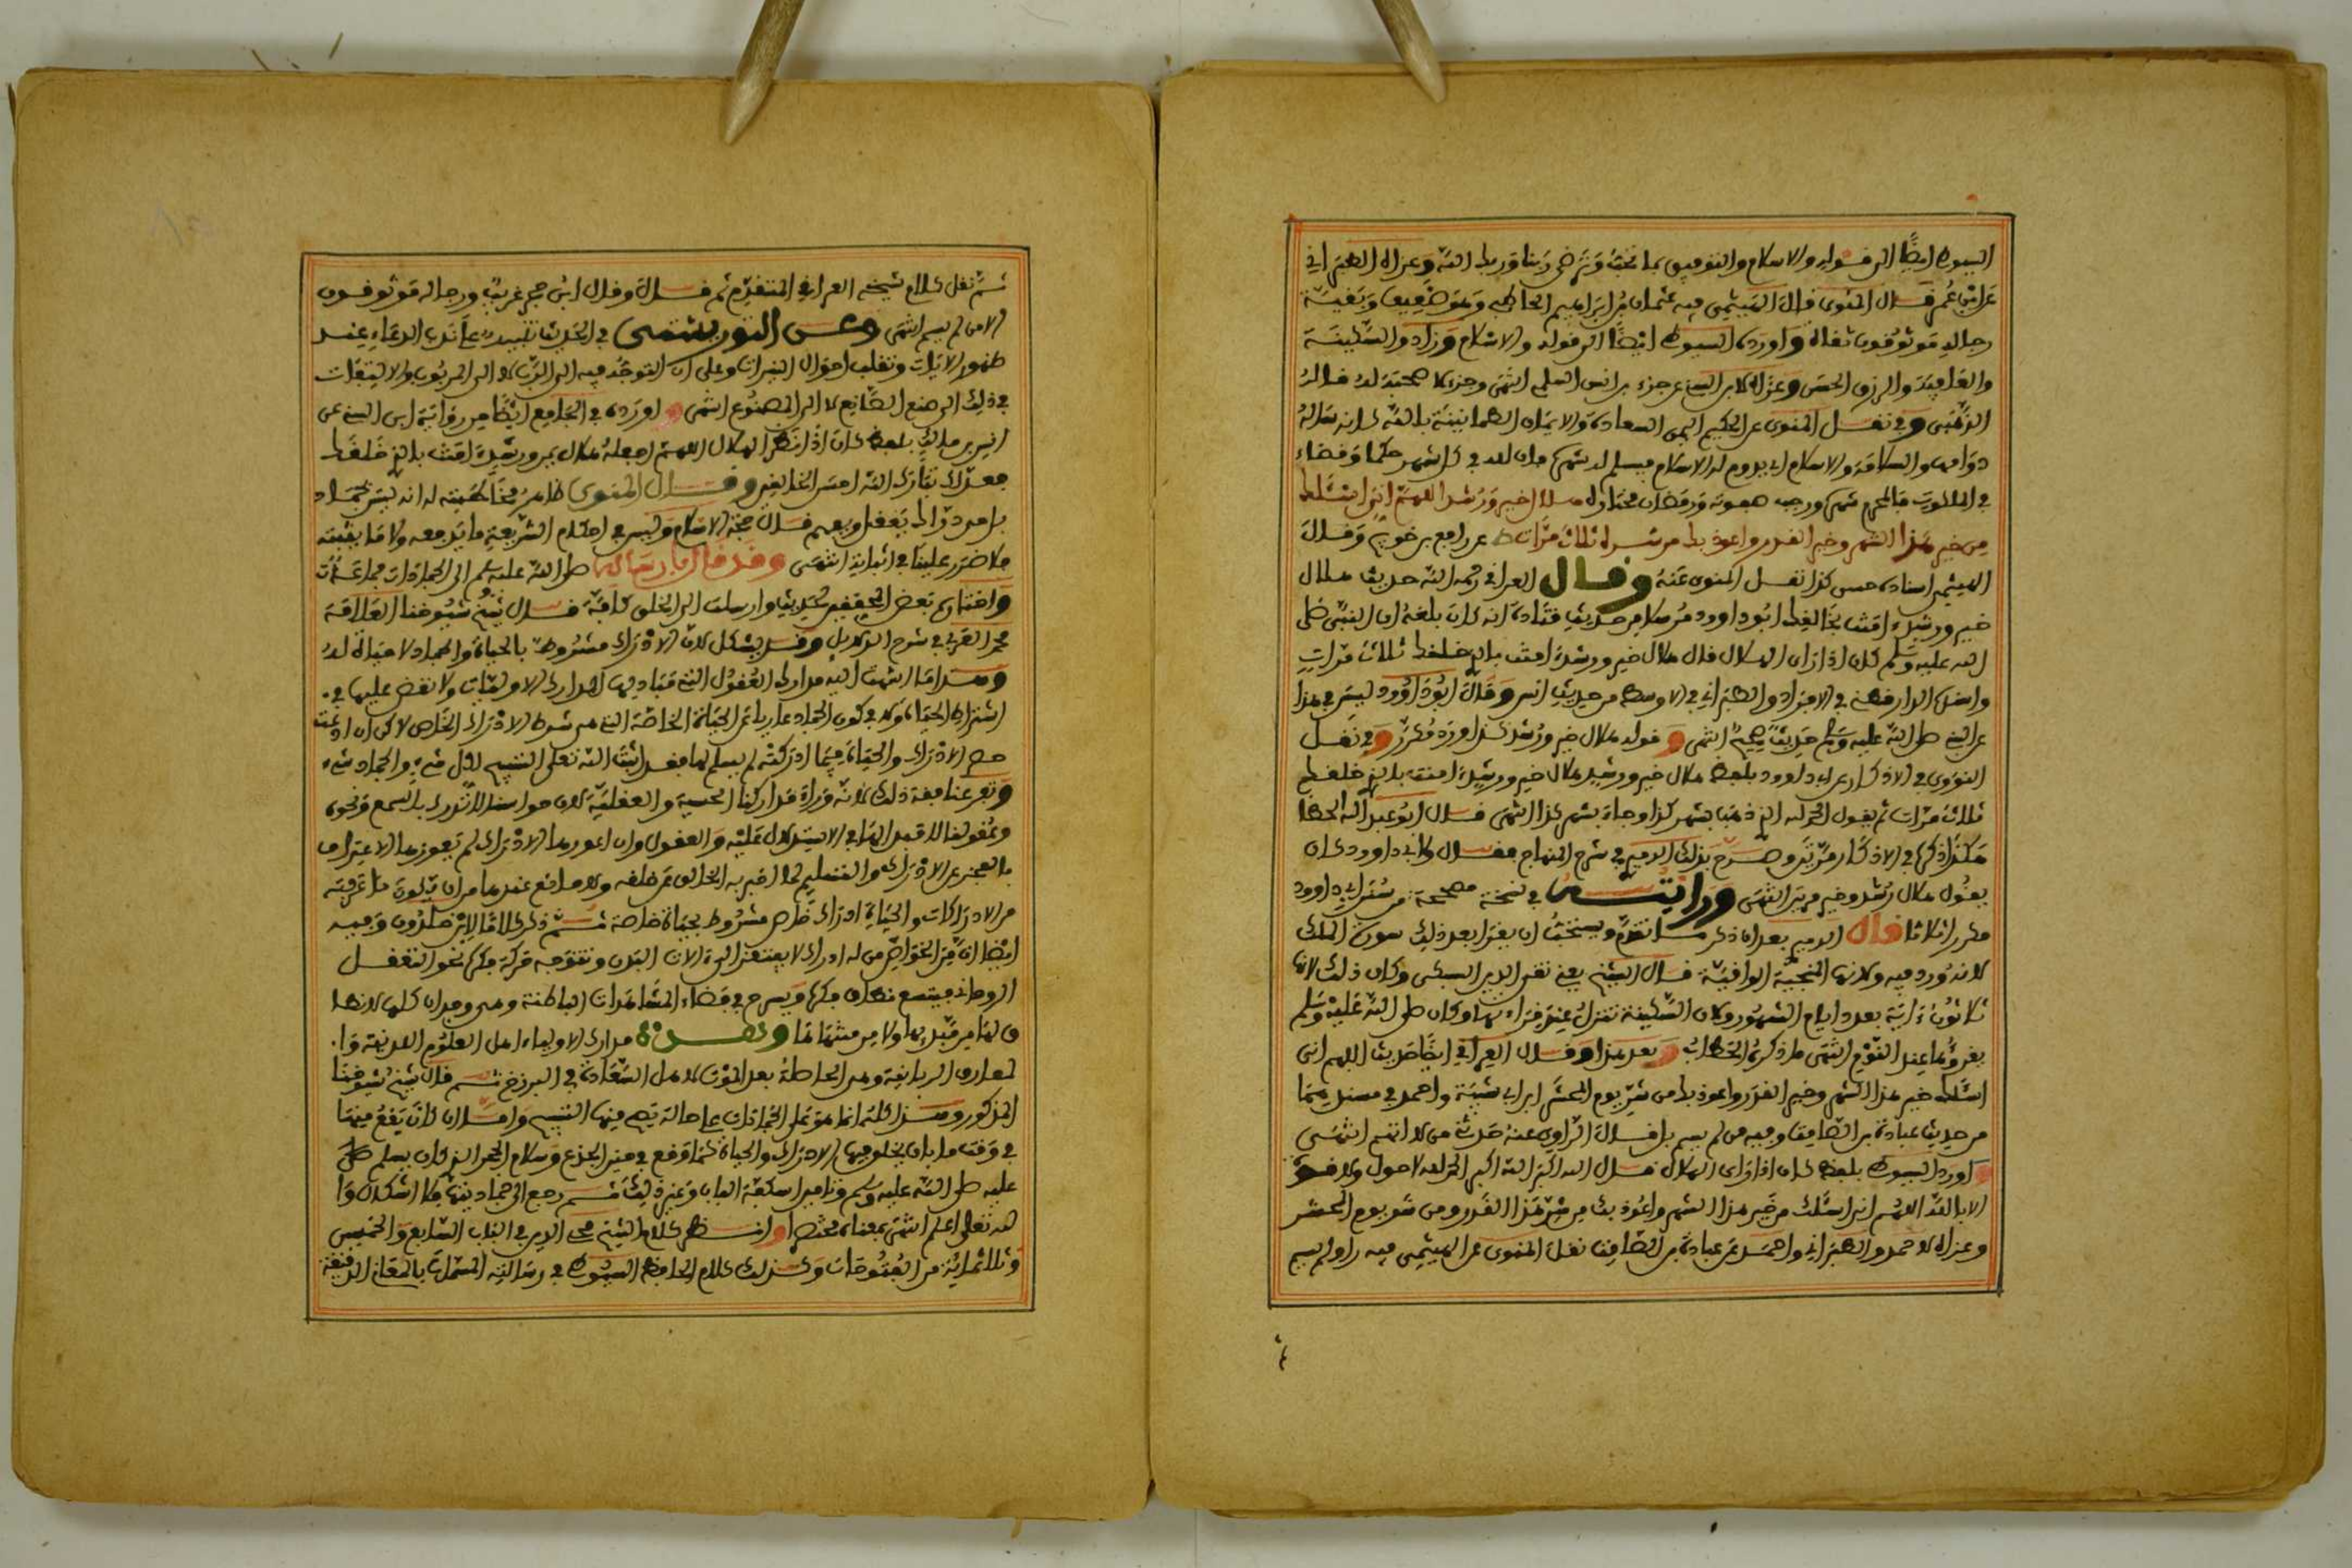 السيوطي ايضا الى قوله والاسلام والتوفيق لما تحبه وترضى ربنا وربك الله وعزاه الطبراني
عن ابن عمر قال المنوي قال الهيثمي فيه عثمان بن ابراهيم الحاطبي وهو ضعيف وبقية
رجاله موثوقون ثقاة واورده السيوطي ايضا الى قوله والاسلام وزاد والسكينة
والعافية والرزق الحسن وعزاه لابن السني عن جزء بن انس السلمي انتهى وجزء لا صحبة له قاله
الذهبي وفي نقل المنوي عن الحكيم اليمن السعادة والايمان الطمانينة بالله كانه سأله
دوامها والسلامة والاسلام ان يدوم له الاسلام ويسلم له شهره فان لله في كل شهر حكما وقضاء
في الملكوت فالمحرم شهره ورجب صفوته ورمضان مختاره هلال خير ورشد اللهم اني اسئلك
من خير هذا الشهر وخير القدر واعوذ بك من شره ثلاث مرات ط عن رافع بن خديج وقال
الهيثمي اسناده حسن كذا نقل المنوي عنه وقال العراقي رحمه الله حديث هلال
خير ورشد امنت بخالقك ابو داوود مرسلا من حديث قتادة انه كان بلغه ان النبي صلى
الله عليه وسلم كان اذا راى الهلال قال هلال خير ورشد امنت بالذي خلقك ثلاث مرات
واسنده الدارقطني في الافراد والطبراني في الاوسط من حديث انس وقال ابو داوود ليس في هذا
عن النبي صلى الله عليه وسلم حديث صحيح انتهى و قوله هلال خير ورشد كذا اورده مكرر وفي نقل
النووي في الاذكار عن ابي داوود بلفظ هلال خير ورشد هلال خير ورشد امنت بالذي خلقك
ثلاث مرات ثم يقول الحمد لله الذي ذهب بشهر كذا وجاء بشهر كذا انتهى قال ابو عبد الله الحطاب
هكذا ذكره في الاذكار مرتين وصرح بذلك الدميري في شرح المنهاج فقال ولابي داوود كان
يقول هلال رشد وخير مرتين انتهى ورايته في نسخة مصححة من سنن ابي داوود
مكررا ثلاثا قال الدميري بعد ان ذكر ما تقدم ويستحب ان يقرا بعد ذلك سورة الملك
لانه ورد فيه ولانها المنجية الواقية قال الشيخ يعني تقي الدين السبكي وكان ذلك لانها
ثلاثون اية بعدد ايام الشهور ولان السكينة تنزل عند قراءتها وكان صلى الله عليه وسلم
يقرؤها عند النوم انتهى ما ذكره الحطاب وبعد هذا وقال العراقي ايضا حديث اللهم اني
اسئلك خير هذا الشهر وخير القدر واعوذ بك من شر يوم المحشر ابن ابي شيبة واحمد في مسنديهما
من حديث عبادة بن الصامت وفيه من لم يسم بل قال الراوي عنه حدثني من لا اتهم انتهى
واورد السيوطي بلفظ كان اذا راى الهلال قال الله اكبر الله اكبر الحمد لله لا حول ولا قوة
الا بالله اللهم اني اسئلك من خير هذا الشهر واعوذ بك من شر هذا القدر ومن شر يوم المحشر
وعزاه لاحمد والطبراني واحمد عن عبادة بن الصامت نقل المنوي عن الهيثمي فيه راو لم يسم
ثم نقل كلام شيخه العراقي المتقدم ثم قال وقال ابن حجر غريب ورجاله موثوقون
الا من لم يسم انتهى وعن التوربشتي في الحديث تنبيه على ندب الدعاء عند
ظهور الايات وتقلب احوال النيرات وعلى ان التوجه فيه الى الرب لا الى المربوب والالتفات
في ذلك الى صنع الصانع لا الى المصنوع انتهى واورده في الجامع ايضا من رواية ابن السني عن
انس بن مالك بلفظ كان اذا نظر الهلال اللهم اجعله هلال يمن ورشد امنت بالذي خلقك
فعدلك تبارك الله احسن الخالقين وقال المنوي ظاهر مخاطبته له انه ليس بجماد
بل حي دراك يعقل ويفهم قال حجة الاسلام وليس في احكام الشريعة ما يدفعه ولا ما يثبته
فلا ضرر علينا في اثباته انتهى وقد قال بارساله صلى الله عليه وسلم الى الجمادات جماعات
واختاره بعض المحققين لحديث وارسلت الى الخلق كافة قال شيخ شيوخنا العلامة
محمد العربي في شرح الدلايل وقد يشكل لان الادراك مشروط بالحياة والجماد لا حياة له
وهذا ما انتهت اليه مدارك العقول التي مباديها المدارك الاوليات ولا نقض عليها في
اشتراط الحياة ولا في كون الجماد عاريا عن الحياة الخاصة التي هي شرط الادراك الخاص لاكن ان ادعت
حصر الادراك والحياة فيما ادركته لم يسلم لها فقد اثبت الله تعالى التسبيح لكل شيء والجماد شيء
ونفى عنا فقه ذلك لانه وراء مداركنا الحسية والعقلية لان حواسنا لا تدرك بالسمع ونحوه
وعقولنا لا قبل لها في الاستدلال عليه والعقول وان اعوزها الادراك لم يعوزها الاعتراف
بالعجز عن الادراك والتسليم لما اخبر به الخالق عن خلقه ولا مانع عندها من ان يكون ما عرفته
من الادراكات والحياة ادراك خاص مشروط بحياة خاصة ثم ذكر كلاما لابن خلدون وفيه
ايضا ان من الخواص من له ادراك لا يفتقر الى الات البدن وتتوجه حركة فكره نحو التعقل
الروحاني فيتسع نطاق فكره ويسرح في فضاء المشاهدات الباطنة وهي وجدان كلها لا نطا
ق لها من مبدئها ولا من منتهاها وهذه مدارك الاولياء اهل العلوم اللدنية وا
لمعارف الربانية وهي الحاصلة بعد الموت لاهل السعادة في البرزخ ثم قال شيخ شيوخنا
المذكور وهذا كله انما هو على ان الجمادات على حالة يصح منها التسبيح واما ان كان يقع منها
في وقت ما بان يخلق فيها الادراك والحياة كما وقع في حنين الجذع وسلام الحجر الذي كان يسلم
عليه صلى الله عليه وسلم وتامين اسكفة الباب وغير ذلك ثم رجع الى جماديته فلا اشكال وا
لله تعالى اعلم انتهى بمعناه مختصرا وانظر كلام الشيخ محي الدين في الباب السابع والخمسين
وثلاثمائة من الفتوحات وكذلك كلام الحافظ السيوطي في رسالته المسماة بالمعاني الدقيقة